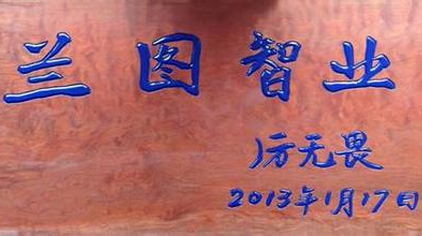 兰图智业
厉无畏
2013年1月17日